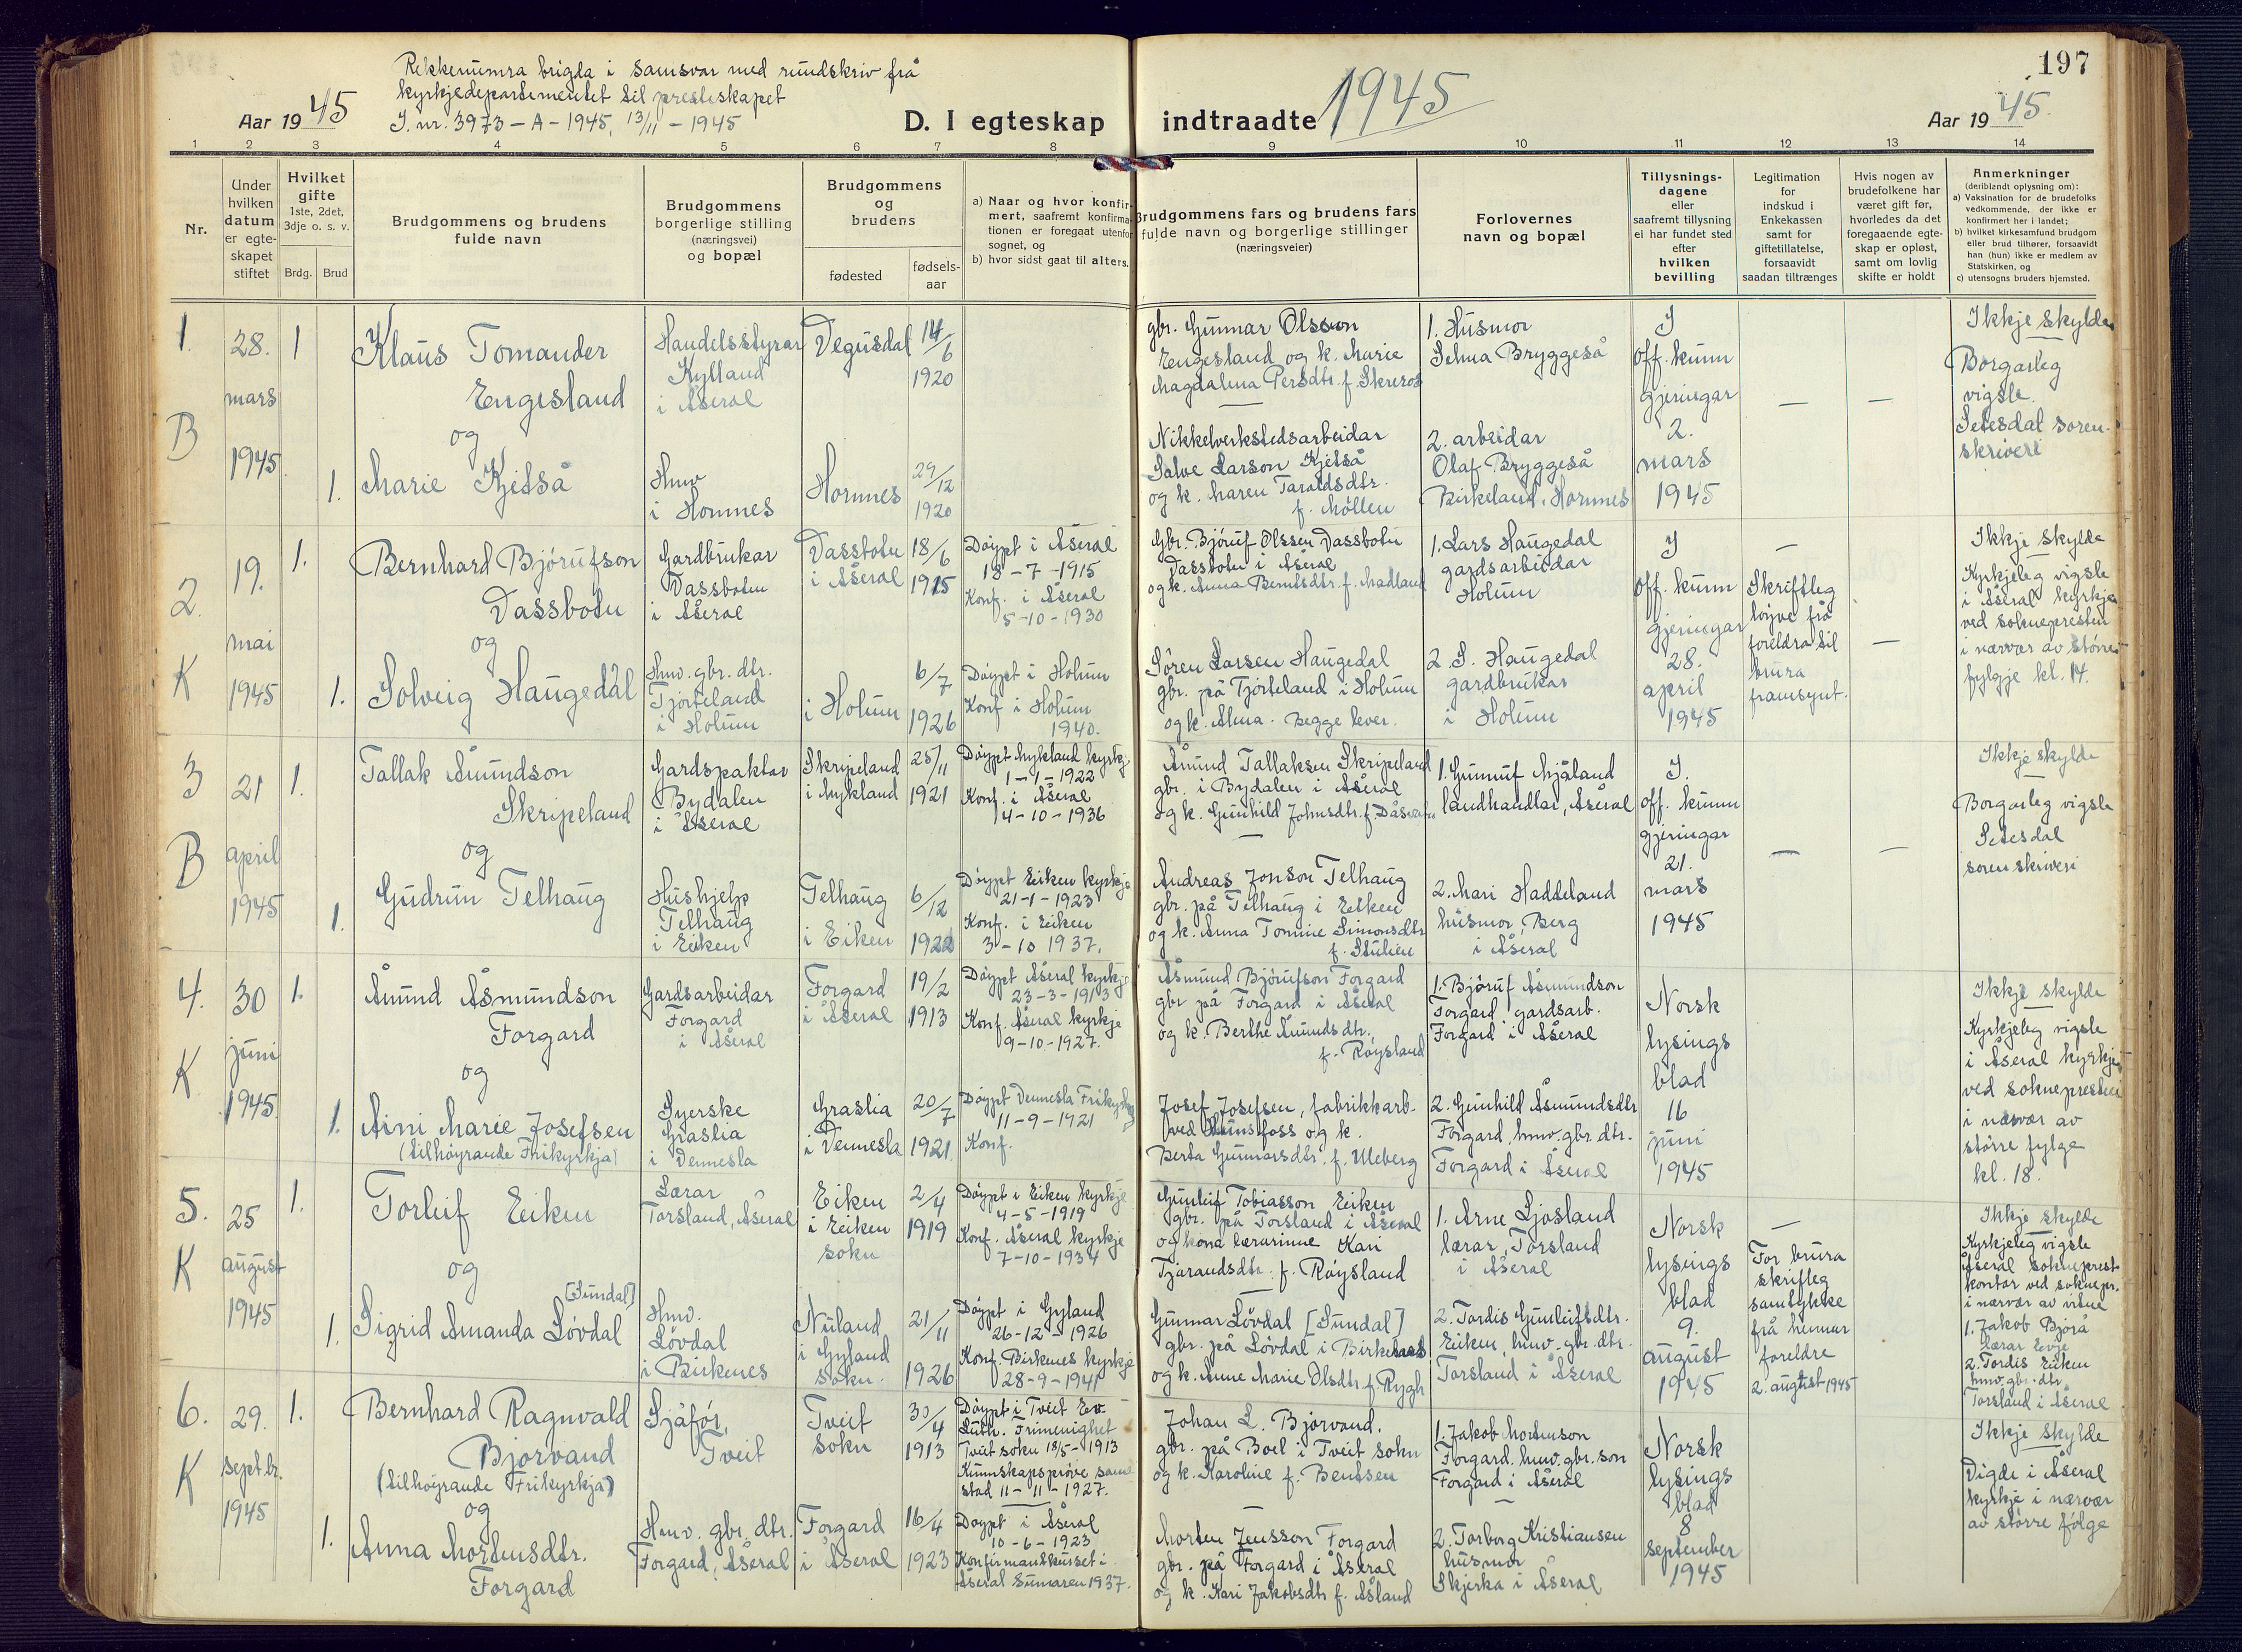 197
Rekkenumra brigda i samsvar med rundskriv frå
kyrkjedepartementet til presteskapet
J. nr. 3973 – A – 1945, 13/11 – 1945
Aar 1945
D. I egteskap indtraadte 1945
Aar 1945.
1 2 3 4 5 6 7 8 9 10 11 12 13 14
Nr.
Under
hvilken
datum
er egte-
skapet
stiftet
Hvilket
gifte
1ste, 2det,
3dje o. s. v.
Brdg. Brud
Brudgommens og brudens
fulde navn
Brudgommens
borgerlige stilling
(næringsvei)
og bopæl
Brudgommens
og
brudens
fødested
fødsels-
aar
a) Naar og hvor konfir-
mert, saafremt konfirma-
tionen er foregaat utenfor
sognet, og
b) hvor sidst gaat til alters.
Brudgommens fars og brudens fars
fulde navn og borgerlige stillinger
(næringsveier)
Forlovernes
navn og bopæl
Tillysnings-
dagene
eller
saafremt tillysning
ei har fundet sted
efter
hvilken
bevilling
Legitimation
for
indskud i
Enkekassen
samt for
giftetillatelse,
forsaavidt
saadan tiltrænges
Hvis nogen av
brudefolkene har
været gift før,
hvorledes da det
foregaaende egte-
skap er opløst,
samt om lovlig
skifte er holdt
Anmerkninger
(deriblandt oplysning om):
a) Vaksination for de brudefolks
vedkommende, der ikke er
konfirmert her i landet;
b) hvilket kirkesamfund brudgom
eller brud tilhører, forsaavidt
han (hun) ikke er medlem av
Statskirken, og
c) utensogns bruders hjemsted.
1.
B
28.
mars
1945
1
Klaus Tomander
Engesland
og
1. Marie Kjetså
Handelsstyrar
Kylland
i Åseral
Hmv
i Hornnes
Vegusdal
Hornnes
14/6
1920
29/12
1920
gbr. Gunnar Olsson
Engesland og k. Marie
Magdalena Persdtr. f. Skreros
—
Nikkelverkstedsarbeidar
Salve Larson Kjetså
og k. Maren Taraldsdtr.
f. Möllen
1. Husmor
Selma Bryggeså
2. arbeidar
Olaf Bryggeså
Birkeland, Hornnes
I
off. kunn
gjeringar
2.
mars
1945
—
—
Ikkje skylde
Borgarleg
vigsle.
Setesdal soren-
skriveri
2.
K
19.
mai
1945
1.
Bernhard Bjórufson
Vassbotn
og
1. Solveig Haugedal
Gardbrukar
Vassbotn
i Åseral
Hmv. gbr. dtr.
Tjorteland
i Holum
Vassbotn
i Åseral
i Holum
18/6
1915
6/7
1926
Döypt i Åseral
18-7-1915
Konf. i Åseral
5-10-1930
Döypt i Holum
Konf i Holum
1940.
Gbr. Bjóruf Olssen Vassbotn
Vassbotn i Åseral
og k. Anna Berntsdtr. f. Madland
Sören Larsen Haugedal
gbr. på Tjorteland i Holum
og k. Alma. Begge lever.
1. Lars Haugedal
gardsarbeidar
Holum
2. S. Haugedal
gardbrukar
i Holum
I
off. kunn
gjeringar
28.
april
1945
—
Skriftleg
löyve frå
foreldra til
brura
framsynt.
—
Ikkje skylde
Kyrkjeleg vigsle
i Åseral kyrkje
ved soknepresten
i nærvær av större
fylgje kl. 14.
3
B
21
april
1945
1.
Tallak Ånundson
Skripeland
og
1. Gudrun Telhaug
Gardspaktar
Bydalen
i Åseral
Hushjelp
Telhaug
i Eiken
Skripeland
i Mykland
Telhaug
i Eiken
25/11
1921
6/12
1922
Döypt Mykland kyrkje
1-1-1922
Konf. i Åseral
4-10-1936
Döypt Eiken kyrkje
21-1-1923
Konf. i Eiken
3-10 1937.
Ånund Tallaksen Skripeland
gbr. i Bydalen i Åseral
og k. Gunhild Johnsdtr. f.
—
Andreas Jonson Telhaug
gbr. på Telhaug i Eiken
og k. Anna Tomine Simonsdtr
f. Stulien
1. Gunnuf Mjåland
landhandlar, Åseral
2. Mari Haddeland
husmor, Berg
i Åseral
I.
off. kunn
gjeringar
21.
mars
1945
—
—
Ikkje skylde
Borgarleg vigsle
Setesdal
sorenskriveri
4.
K
30
juni
1945
1.
Ånund Åsmundson
Forgard
og
1. Aini Marie Josefsen
(tilhöyrande Frikyrkja)
Gardsarbeidar
Forgard
i Åseral
Syerske
Graslia
i Vennesla
Forgard
i Åseral
Graslia
i Vennesla
19/2
1913
20/7
1921
Döypt Åseral kyrkje
23-3-1913
Konf. Åseral kyrkje
9-10-1927.
Döypt Vennesla Frikyrkje
11-9-1921
Konf.
Åsmund Bjórufson Forgard
gbr på Forgard i Åseral
og k. Berthe Ånundsdtr.
f. Röysland
Josef Josefsen, fabrikkarb.
ved Hunsfoss og k.
Berta Gunnarsdtr. f. Uleberg
1. Bjóruf Åsmundson
Forgard gardsarb.
Forgard i Åseral
2. Gunhild Åsmundsdtr
Forgard, hmv. gbr. dtr.
Forgard i Åseral
Norsk
lysings
blad
16
juni
1945
Ikkje skylde
Kyrkjeleg vigsle
i Åseral kyrkje
ved soknepresten
i nærvær av
större fylge
kl. 18.
5.
K
25
august
1945
1.
Torleif Eiken
og
[Sundal]
1. Sigrid Amanda Lövdal
Lærar
Torsland, Åseral
Hmv.
Lövdal
i Birkenes
Eiken
i Eiken
sokn
Nuland
i Gyland
sokn.
2/4
1919
21/11
1926
Döypt i Eiken kyrkje
4-5-1919
Konf. Åseral kyrkje
7-10-1934
Döypt i Gyland
26-12-1926
Konf. Birkenes kyrkje
28-9-1941
Gunleif Tobiasson Eiken
gbr. på Torsland i Åseral
og kona lærarinne Kari
Tjørandsdtr. f. Röysland
—
Gunnar Lövdal [Sundal]
gbr. på Lövdal i Birkenes
og k. Anne Marie Olsdtr f. Rygh
1. Arne Ljosland
lærar, Torsland
i Åseral
2. Tordis Gunleifsdtr.
Eiken, hmv. gbr. dtr.
Torsland i Åseral
Norsk
lysings
blad
9.
august
1945
—
For brura
skriftleg
samtykke
frå hennar
foreldre
2. august 1945
Ikkje skylde
Kyrkjeleg vigsle
Åseral sokneprest
kontor ved soknepr.
i nærvær av vitne
1. Jakob Bjorå
lærar Evje
2. Tordis Eiken
hmv. gbr. dtr
Torsland i Åseral
6.
K
29.
septbr.
1945
1.
Bernhard Ragnvald
Bjorvand
(tilhöyrande Frikyrkja)
og
1. Anna Mortensdtr.
Forgard
Sjåför,
Tveit
Hmv. gbr. dtr.
Forgard, Åseral
Tveit
sokn
Forgard
i Åseral
30/4
1913
16/4
1923
Döypt i Tveit Ev.
Luth. Frimenighet
Tveit sokn 18/5-1913
Kunnskapspröve same
stad 11-11-1927.
Döypt i Åseral
10-6-1923
i
Åseral sumaren 1937.
Johan L. Bjorvand.
gbr. på Boel i Tveit sokn
og k. Karoline f. Bentsen
—
Morten Jensson Forgard
gbr. på Forgard i Åseral
og k. Kari Jakobsdtr f. Åsland
1. Jakob Mortenson
Forgard. hmv. gbr. son
Forgard i Åseral
—
2. Torborg Kristiansen
husmor
Skjerka i Åseral
Norsk
lysings
blad
8
september
1945
Ikkje skylde
Vigde i Åseral
kyrkje i nærvær
av större fölge